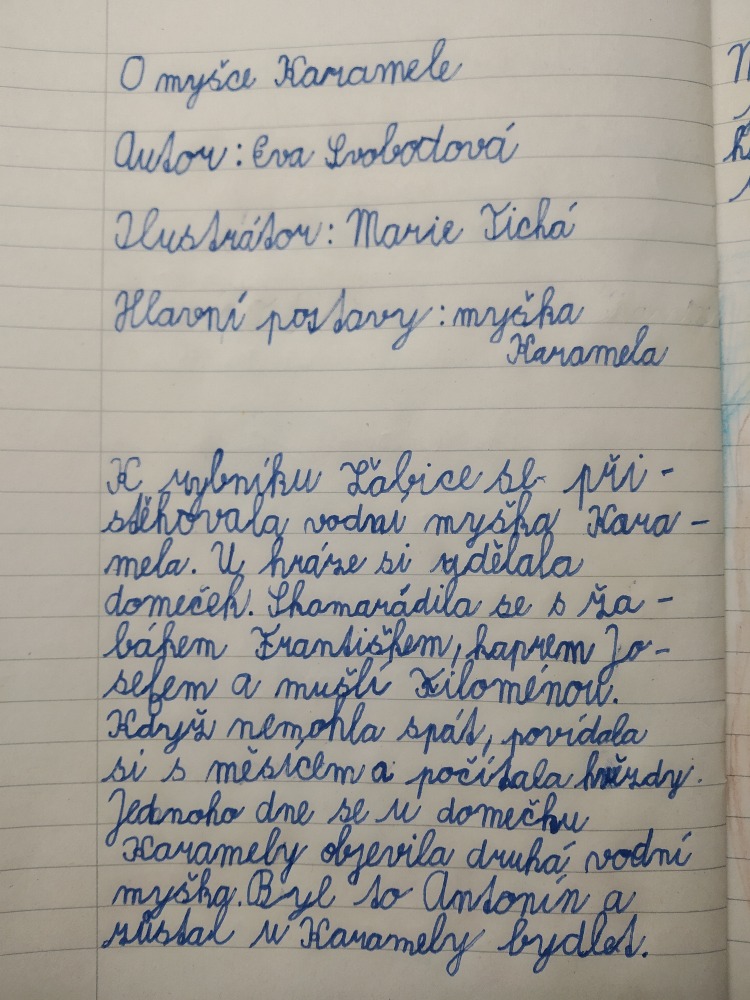 O myšce Karamele
Autor: Eva Svobodová
Ilustrátor: Marie Tichá
Hlavní postavy: myška
Karamela
K rybníku Žabice se při-
stěhovala vodní myška Kara-
mela. U hráze si udělala
domeček. Skamarádila se s ža-
bákem Františkem, kaprem Jo-
sefem a mušlí Filoménou.
Když nemohla spát, povídala
si s měsícem a počítala hvězdy.
Jednoho dne se u domečku
Karamely objevila druhá vodní
myška. Byl to Antonín a
zůstal u Karamely bydlet.